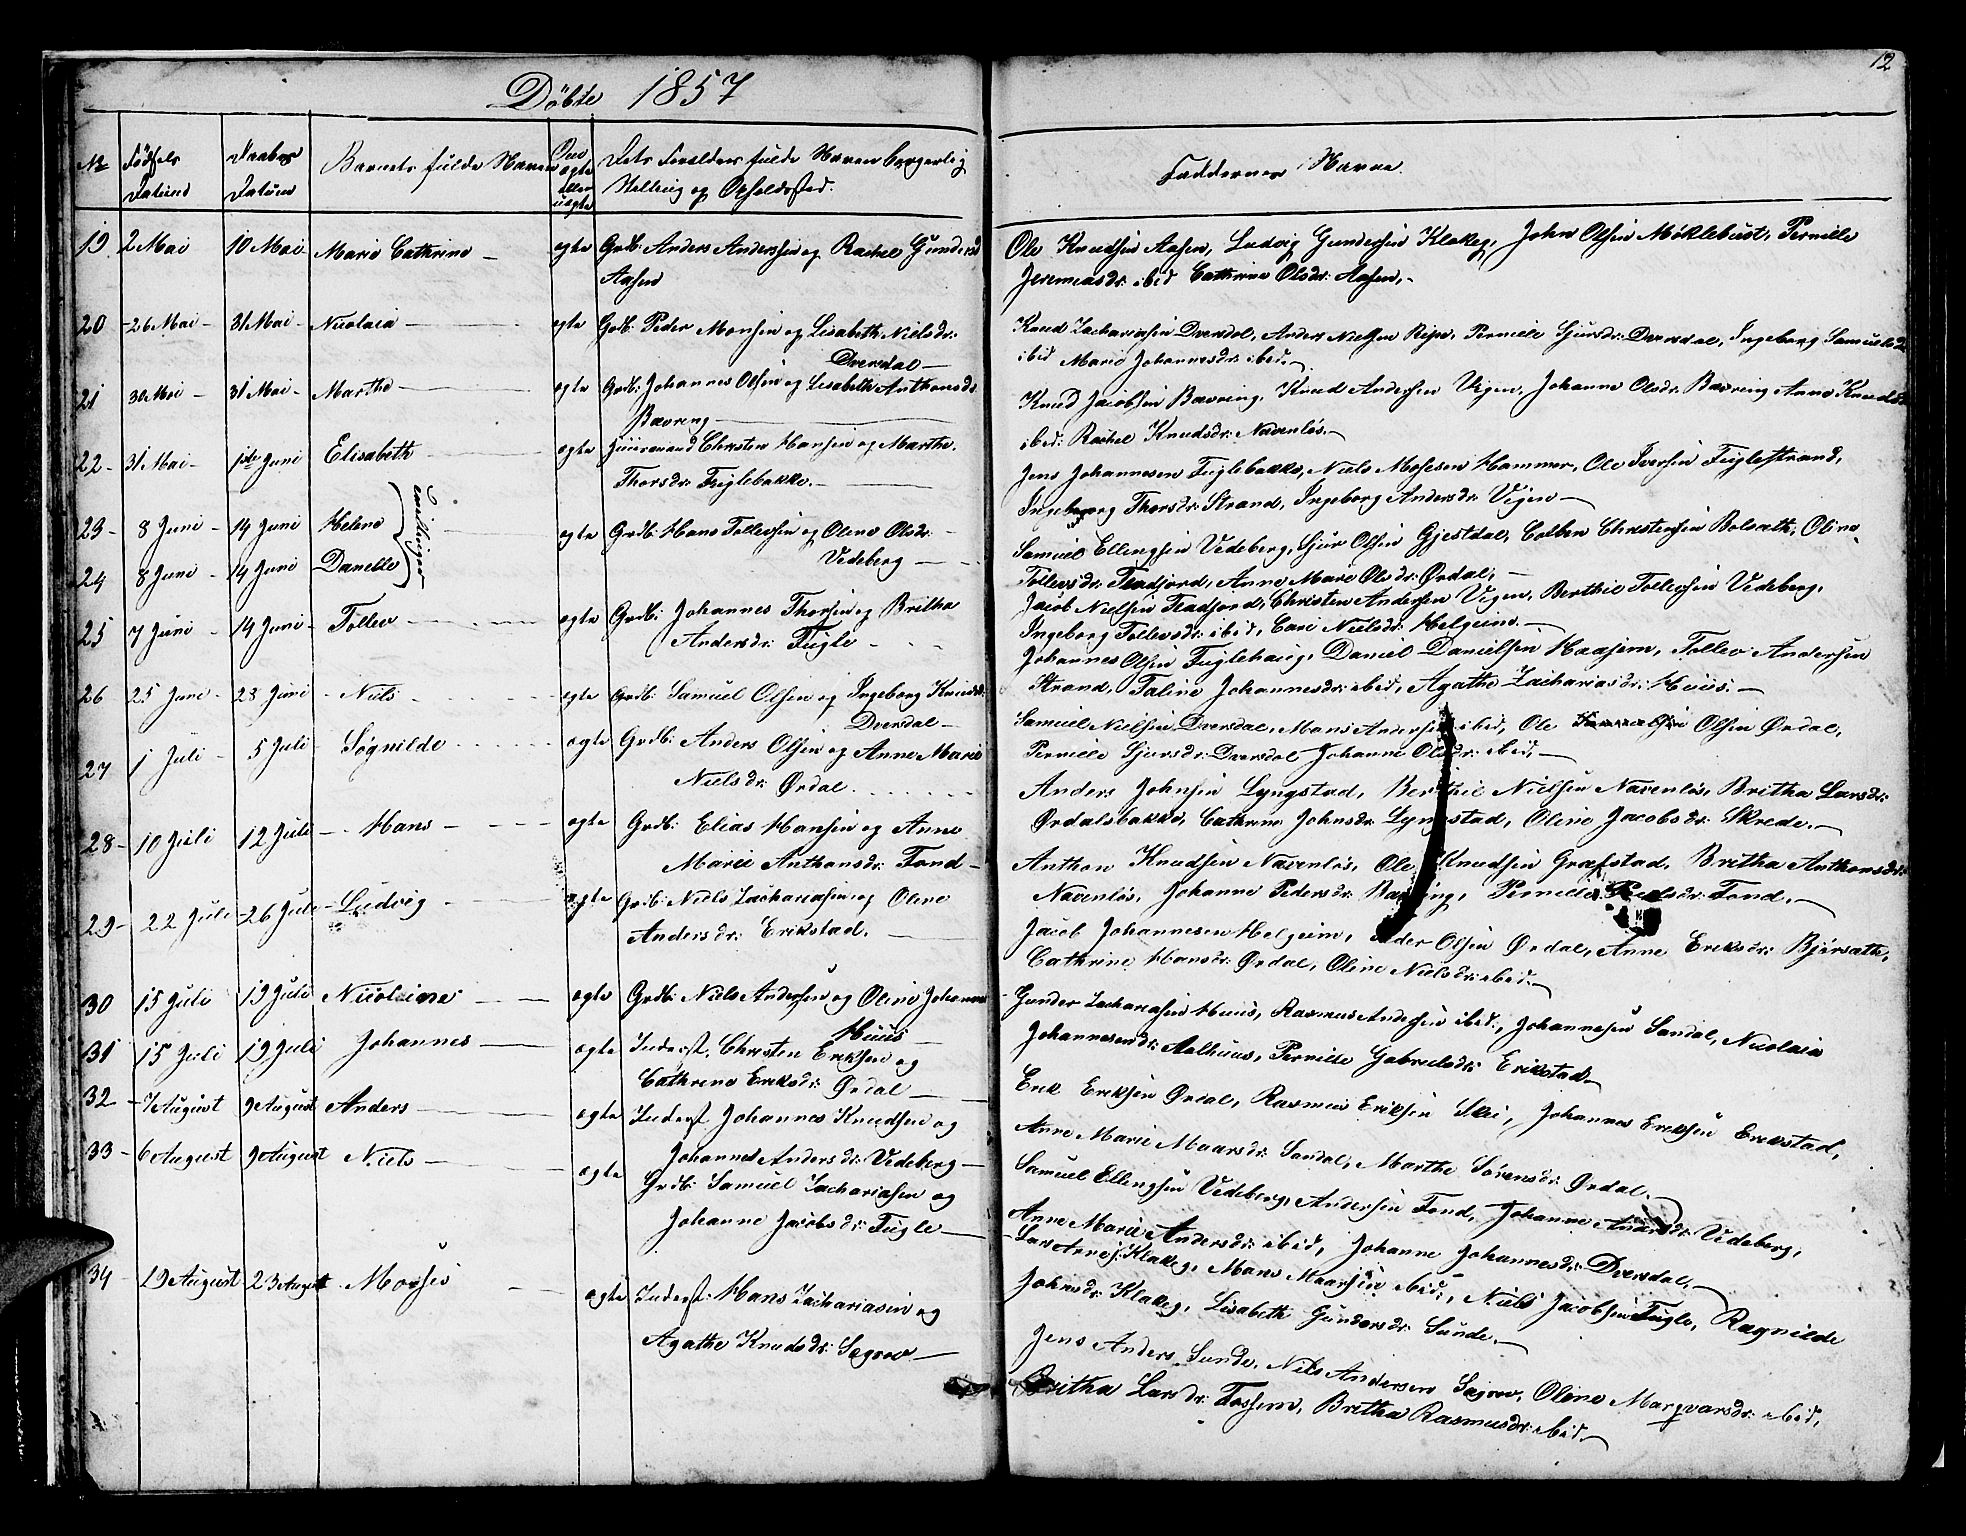 12
Döbte 1857
№ Fødsels Datum
Daabs Datum
Barnets fulde Navn
Om ægte eller uægte
Dets Forældres fulde Navne borgerlig Stilling og Opholdssted.
Faddernes Navne.
19 2 Mai 10 Mai Marie Cathrine ægte Grdb: Anders Anderssen og Rachel Gundersd
Aasen
Ole Knudsen Aasen, Ludvig Gundersen Klakeg, John Olsen Møklebust, Pernille
Jeremiasdr: ibid Cathrine Olsdr: Aasen.
20 26 Mai 31 Mai Nicolaia ægte Grdb: Peder Monsen og Lisabeth Nielsdr:
Dversdal
Knud Zachariasen Dversdal, Anders Nielsen Ripe, Pernille Sjursdr: Dversdal, Ingeborg Samuelsdr
ibid Marie Johannesdr: ibid.
21 30 Mai 31 Mai Marthe ægte Grdb: Johannes Olsen og Lisabeth Anthonsdr
Bævring
Knud Jacobsen Bævring, Knud Andersen Vigen, Johanne Olsdr: Bævring Anne Knudsdr
ibid: Rachel Knudsdr: Navenløs.
22 31 Mai 1ste Juni Elisabeth ægte Huusmand Christen Hansen og Marthe
Thorsdr: Fuglebakke.
Jens Johannesen Fuglebakke, Niels Mosesen Hammer, Ole Iversen Fuglestrand,
Ingeborg Thorsdr: Strand, Ingeborg Andersdr: Vigen
23 8 Juni 14 Juni Helene ægte Grdb: Hans Tollevsen og Oline Olsdr:
Tvillinger
Vedeberg
24 8 Juni 14 Juni Danelle
Samuel Ellingsen Vedeberg, Sjur Olsen Gjestdal, Colben Christensen Bolsæth, Oline
Tollevsdr: Aadfjord, Anne Marie Olsdr: Ørdal,
25 7 Juni 14 Juni Tollev ægte Grdb: Johannes Thorsen og Britha
Andersdr: Fugle
Jacob Nielsen Aadfjord, Christen Andersen Vigen, Berthe Tollevsen Vedeberg,
Ingeborg Tollevsdr: ibid, Cari Nielsdr: Helgeim.
26 25 Juni 28 Juni Niels ægte Grdb: Samuel Olsen og Ingeborg Knudsdr:
Dversdal
Johannes Olsen Fuglehaug, Daniel Danielsen Haajem, Tollev Andersen
Strand, Taline Johannesdr: ibid, Agathe Zachariasdr: Huus.
27 1 Juli 5 Juli Søgnilde ægte Grdb: Anders Olsen og Anne Marie
Nielsdr: Ørdal
Samuel Nielsen Dversdal, Mons Andersen ibid, Ole Olsen Ørdal,
Pernille Sjursdr: Dversdal Johanne Olsdr: ibid,
28 10 Juli 12 Juli Hans ægte Grdb: Elias Hansen og Anne
Marie Anthonsdr: Fond
Anders Johnsen Lyngstad, Berthe Nielsen Navenløs, Britha Larsdr:
Ørdalsbakke, Cathrine Johnsdr: Lyngstad, Oline Jacobsdr: Skrede.
29 22 Juli 26 Juli Ludvig ægte Grdb: Niels Zachariasen og Oline
Andersdr: Erikstad.
Anthon Knudsen Navenløs, Ole Knudsen Græfstad, Britha Anthonsdr:
Navenløs, Johanne Pedersdr: Bævring, Pernille Fond.
Jacob Johannesen Helgeim, Olsen Ørdal, Anne Eriksdr: Bjørsæth,
Cathrine Hansdr: Ørdal, Oline Nielsdr: ibid.
30 15 Juli 19 Juli Nicoline ægte Grdb: Niels Andersen og Oline Johannes
Huus
Gunder Zachariasen Huus, Rasmus Andersen ibid., Johannesen Sandal, Nicolaia
Johannesendr: Aalhuus, Pernille Gabrielsdr: Erikstad
31 15 Juli 19 Juli Johannes ægte Inderst. Christen Eriksen og
Cathrine Eriksdr: Ørdal
Erik Eriksen Ørdal, Rasmus Eriksen Skei, Johannes Eriksen Erikstad,
Anne Marie Maarsdr: Sandal, Marthe Sørensdr: Ørdal.
32 7 August 9 August Anders ægte Inderst Johannes Knudsen og
Johanne Andersdr: Vedeberg
Samuel Ellingsen Vedeberg, Andersen Fond, Johanne Andersdr: Vedeberg,
Anne Marie Andersdr: ibid, Johanne Johannesdr: Dversdal.
33 6 August 9 August Niels ægte Grdb: Samuel Zachariasen og
Johanne Jacobsdr: Fugle
Lars Klakeg, Mons Maarsen ibid:, Niels Jacobsen Fugle, Ragnilde
Johnsdr: Klakeg, Lisabeth Gundersdr: Sunde.
34 19 August 23 August Moyses ægte Inderst: Hans Zachariasen og
Agathe Knudsdr: Sægrov
Jens Anders Sunde, Nils Andersen Sægrov, Oline Marqvarsdr: ibid,
Britha Larsdr: Fossem, Britha Rasmusdr: ibid.